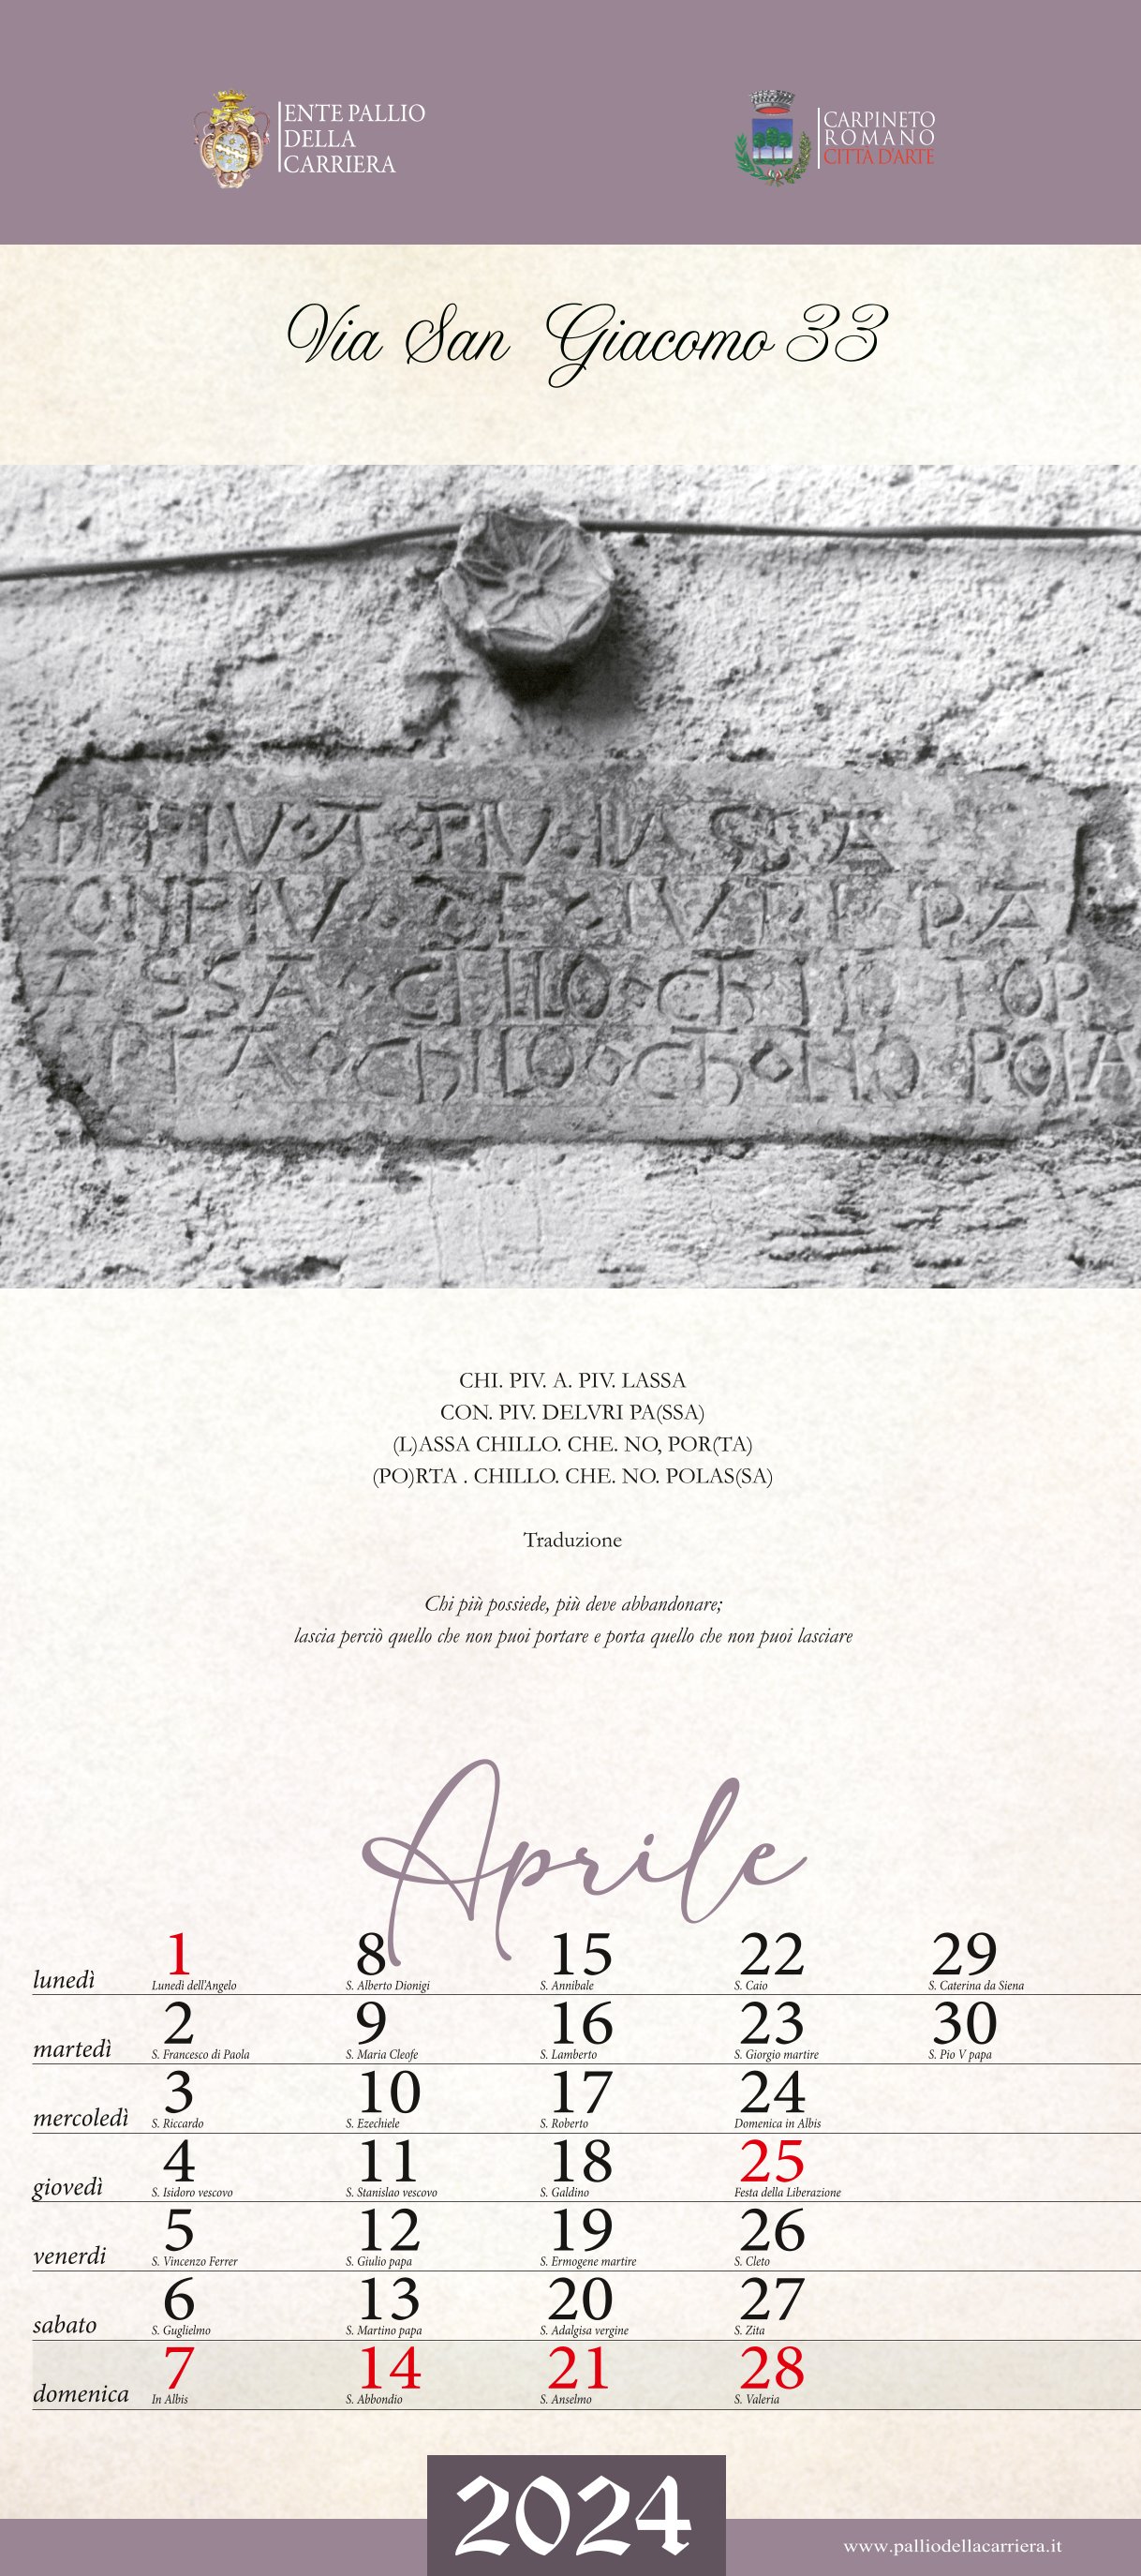 ENTE PALLIO
DELLA
CARRIERA
CARPINETO
ROMANO
CITTA D'ARTE
Via San Giacomo 33
PIV
PIV
CHILO
CHILO
CHI. PIV. A. PIV. LASSA
CON. PIV. DELVRI PA(SSA)
(L)ASSA CHILLO. CHE. NO, POR(TA)
(PO)RTA . CHILLO. CHE. NO. POLAS(SA)
Traduzione
Chi più possiede, più deve abbandonare;
lascia perciò quello che non puoi portare e porta quello che non puoi lasciare
Aprile
lunedì 1 8 15 22 29
Lunedì dell'Angelo S. Alberto Dionigi S. Annibale S. Caio S. Caterina da Siena
martedì 2 9 16 23 30
S. Francesco di Paola S. Maria Cleofe S. Lamberto S. Giorgio martire S. Pio V papa
mercoledì 3 10 17 24
S. Riccardo S. Ezechiele S. Roberto Domenica in Albis
giovedì 4 11 18 25
S. Isidoro vescovo S. Stanislao vescovo S. Galdino Festa della Liberazione
venerdi 5 12 19 26
S. Vincenzo Ferrer S. Giulio papa S. Ermogene martire S. Cleto
sabato 6 13 20 27
S. Guglielmo S. Martino papa S. Adalgisa vergine S. Zita
domenica 7 14 21 28
In Albis S. Abbondio S. Anselmo S. Valeria
2024
www.palliodellacarriera.it